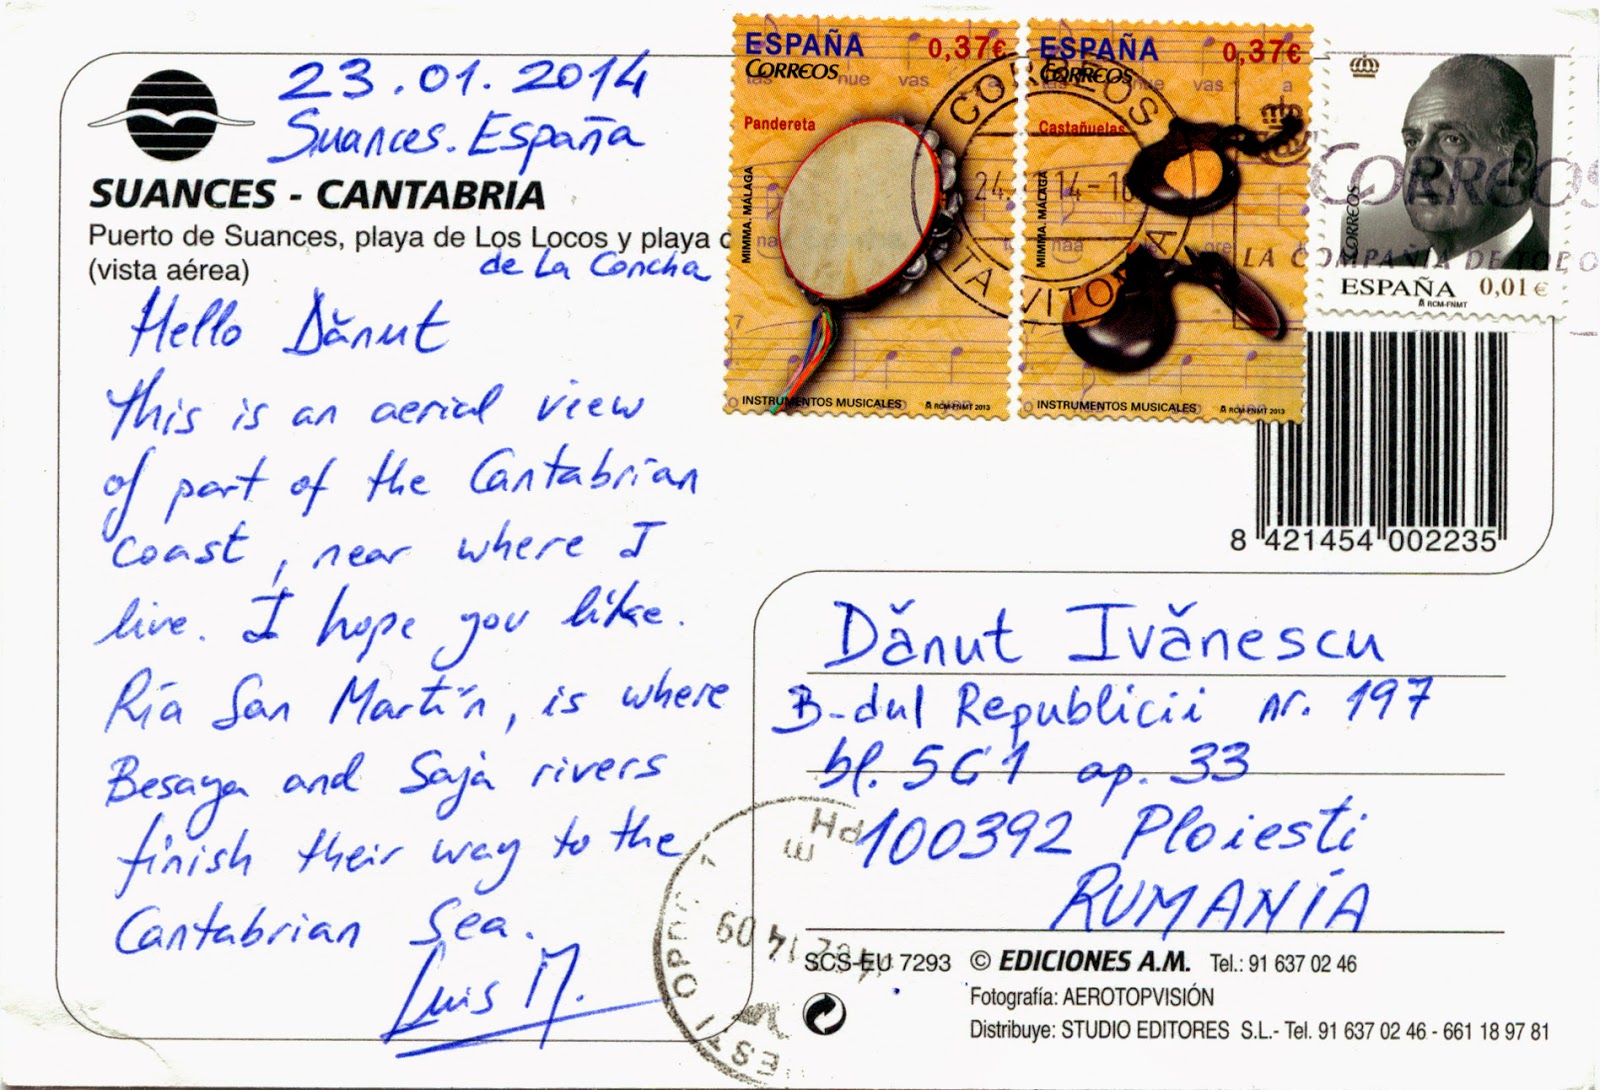 23.01.2014
Suances. España
SUANCES - CANTABRIA
Puerto de Suances, playa de Los Locos y playa
de La Concha
(vista aérea)
Hello Dănut
This is an aerial view
of part of the Cantabrian
coast, near where I
live. I hope you like.
Ría San Martín, is where
Besaya and Saja rivers
finish their way to the
Cantabrian Sea.
Luis M.
ESPAÑA 0,37€
CORREOS
nue vas a
Pandereta
MIMMA. MÁLAGA
INSTRUMENTOS MUSICALES RCM-FNMT 2013
ESPAÑA 0,37€
CORREOS
nue vas a
Castañuelas
MIMMA. MÁLAGA
INSTRUMENTOS MUSICALES RCM-FNMT 2013
CORREOS
ESPAÑA 0,01€
RCM-FNMT
CORREOS
24
14-1
VITORIA
CORREOS
LA COMPAÑIA DE TODO
8 421454 002235
Dănut Ivănescu
B-dul Republicii nr. 197
bl. 5C1 ap. 33
100392 Ploiesti
RUMANÍA
14 09
SCS-EU 7293 © EDICIONES A.M. Tel.: 91 637 02 46
Fotografía: AEROTOPVISIÓN
Distribuye: STUDIO EDITORES S.L.- Tel. 91 637 02 46 - 661 18 97 81